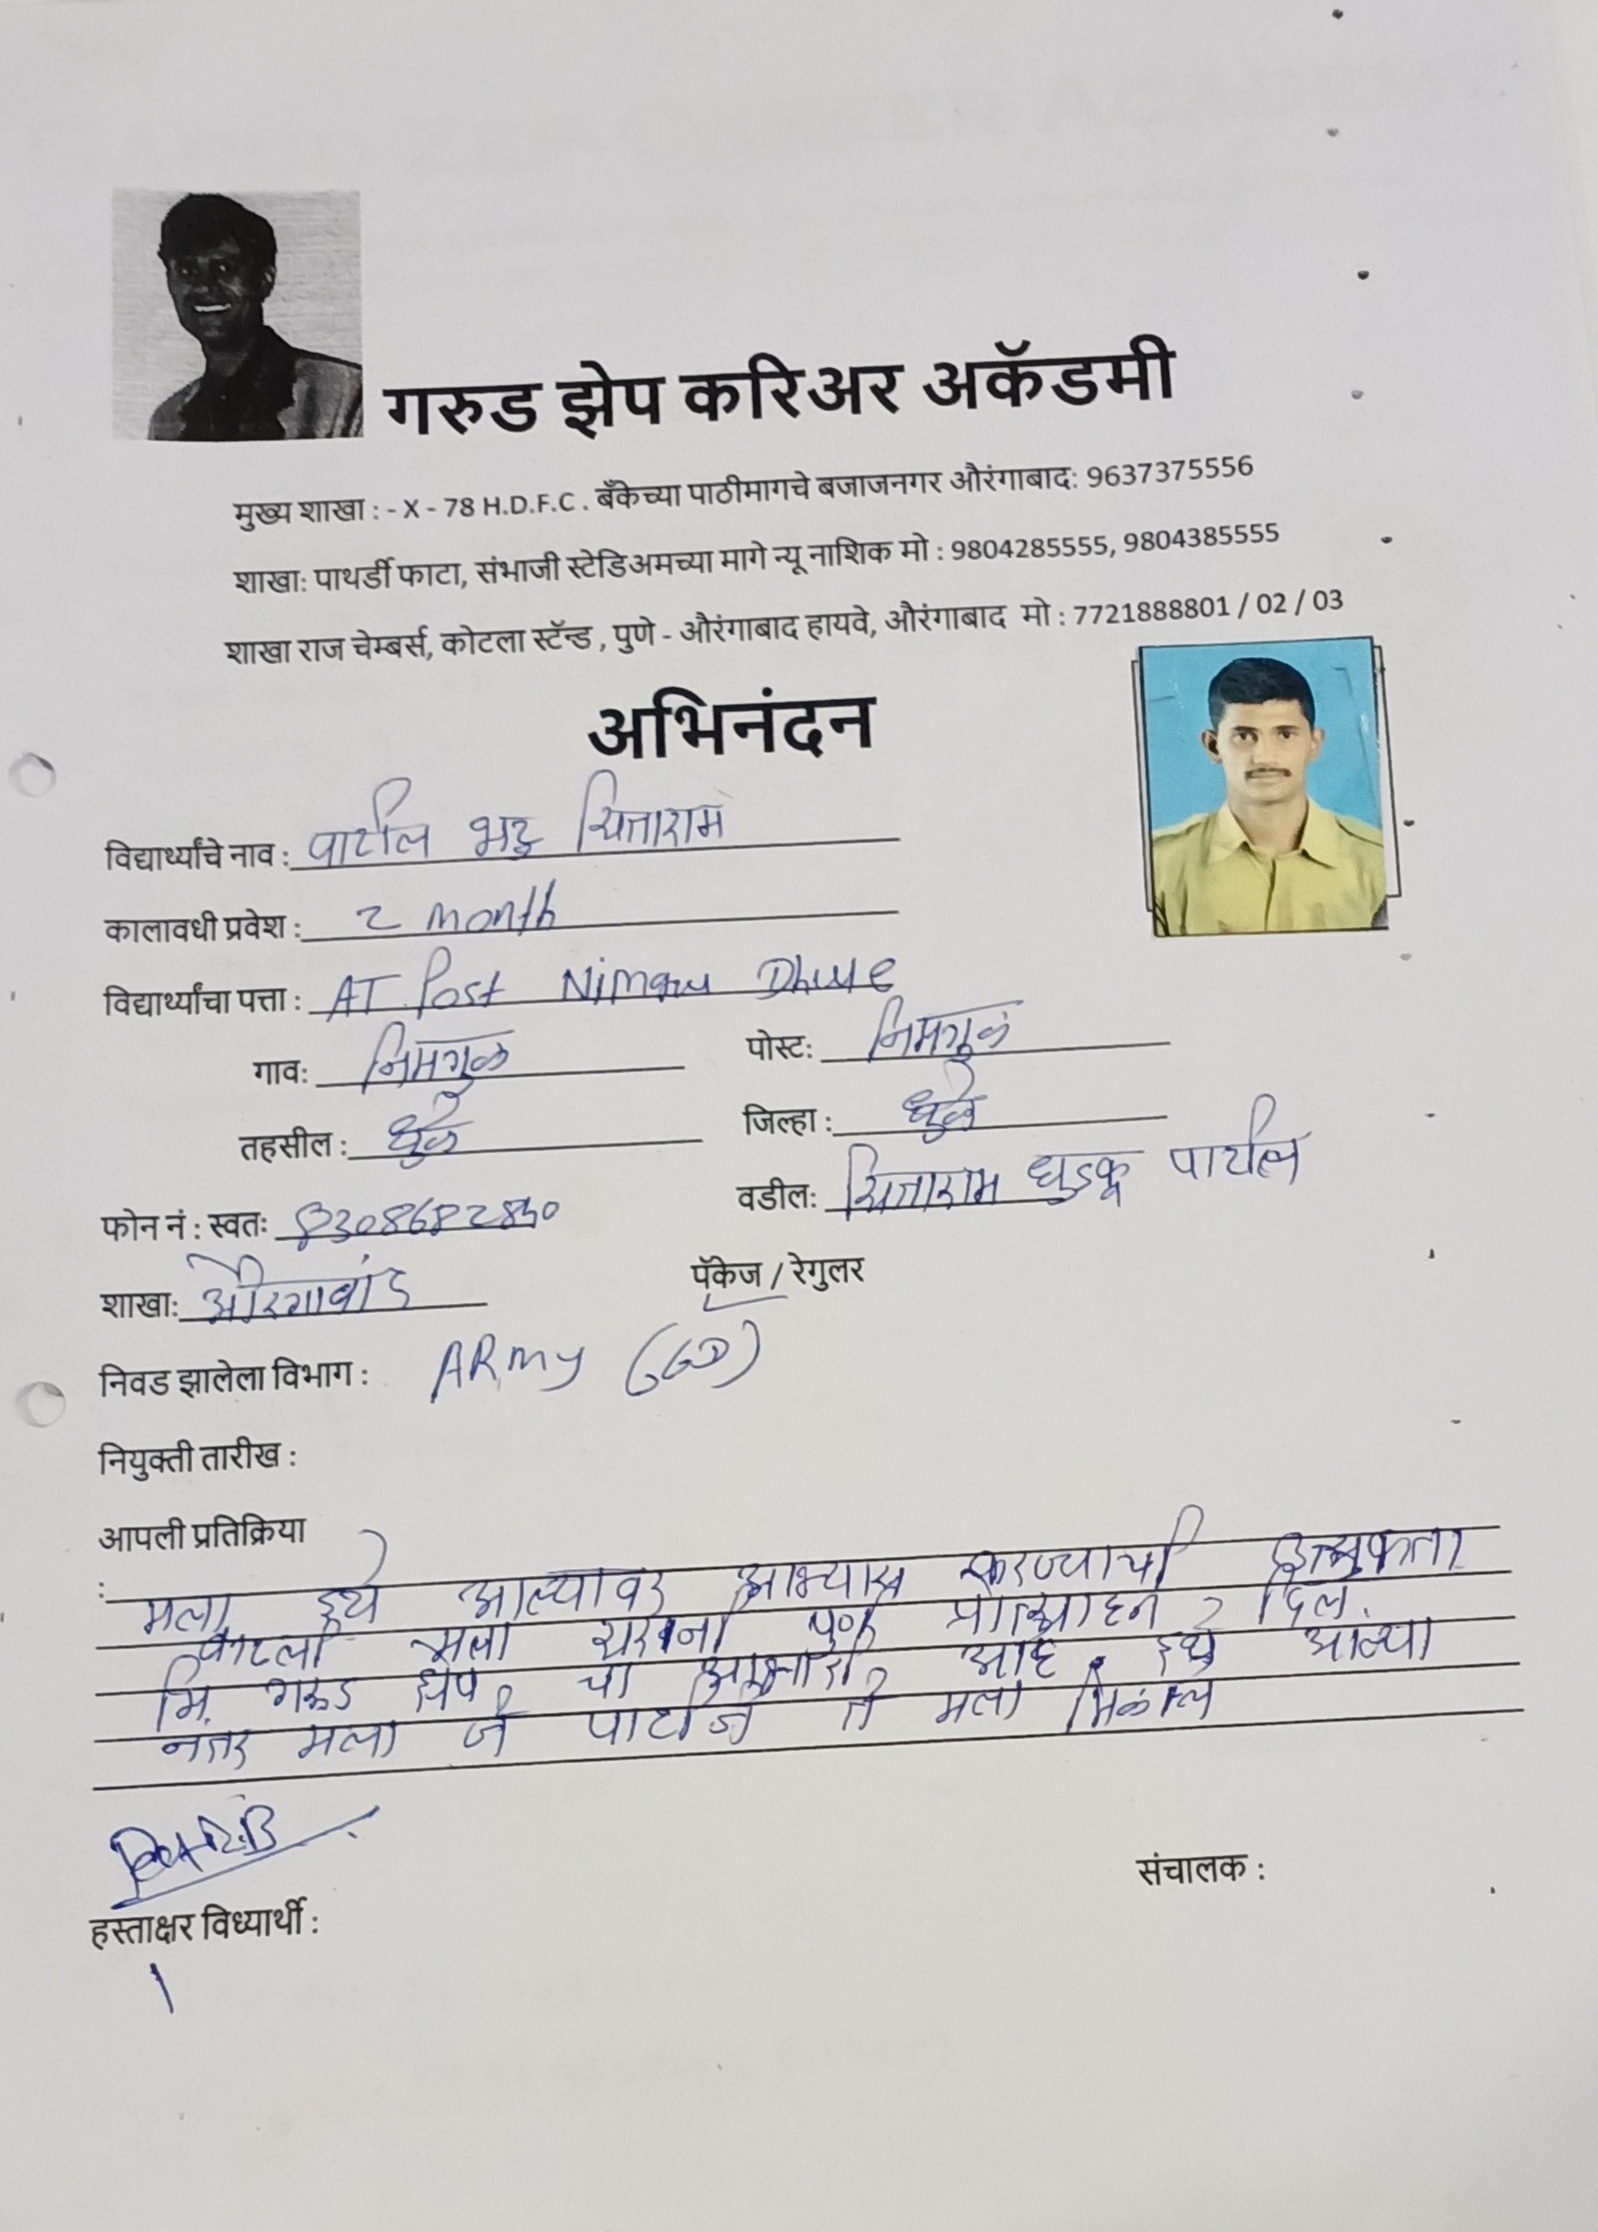 गरुड झेप करिअर अकॅडमी
मुख्य शाखा : - X - 78 H.D.F.C . बँकेच्या पाठीमागचे बजाजनगर औरंगाबाद: 9637375556
शाखा: पाथर्डी फाटा, संभाजी स्टेडिअमच्या मागे न्यू नाशिक मो : 9804285555, 9804385555
शाखा राज चेम्बर्स, कोटला स्टॅन्ड , पुणे - औरंगाबाद हायवे, औरंगाबाद मो : 7721888801 / 02 / 03
अभिनंदन
विद्यार्थ्यांचे नाव : पाटील
कालावधी प्रवेश : 2 month
विद्यार्थ्यांचा पत्ता : AT Post Dhule
गाव: निमगुळ पोस्ट: निमगुळ
तहसील : धुळे जिल्हा : धुळे
फोन नं : स्वतः वडील: धुडकू पाटील
शाखा: पॅकेज / रेगुलर
निवड झालेला विभाग : ARmy (GD)
नियुक्ती तारीख :
आपली प्रतिक्रिया
: मला इथे आल्यावर अभ्यास करण्याची
वाटली मला पुर्ण दिले.
मि. गरुड झेप चा आहे. इथे आल्या
नंतर मला जे पाहीजे ते मला
संचालक :
हस्ताक्षर विध्यार्थी :